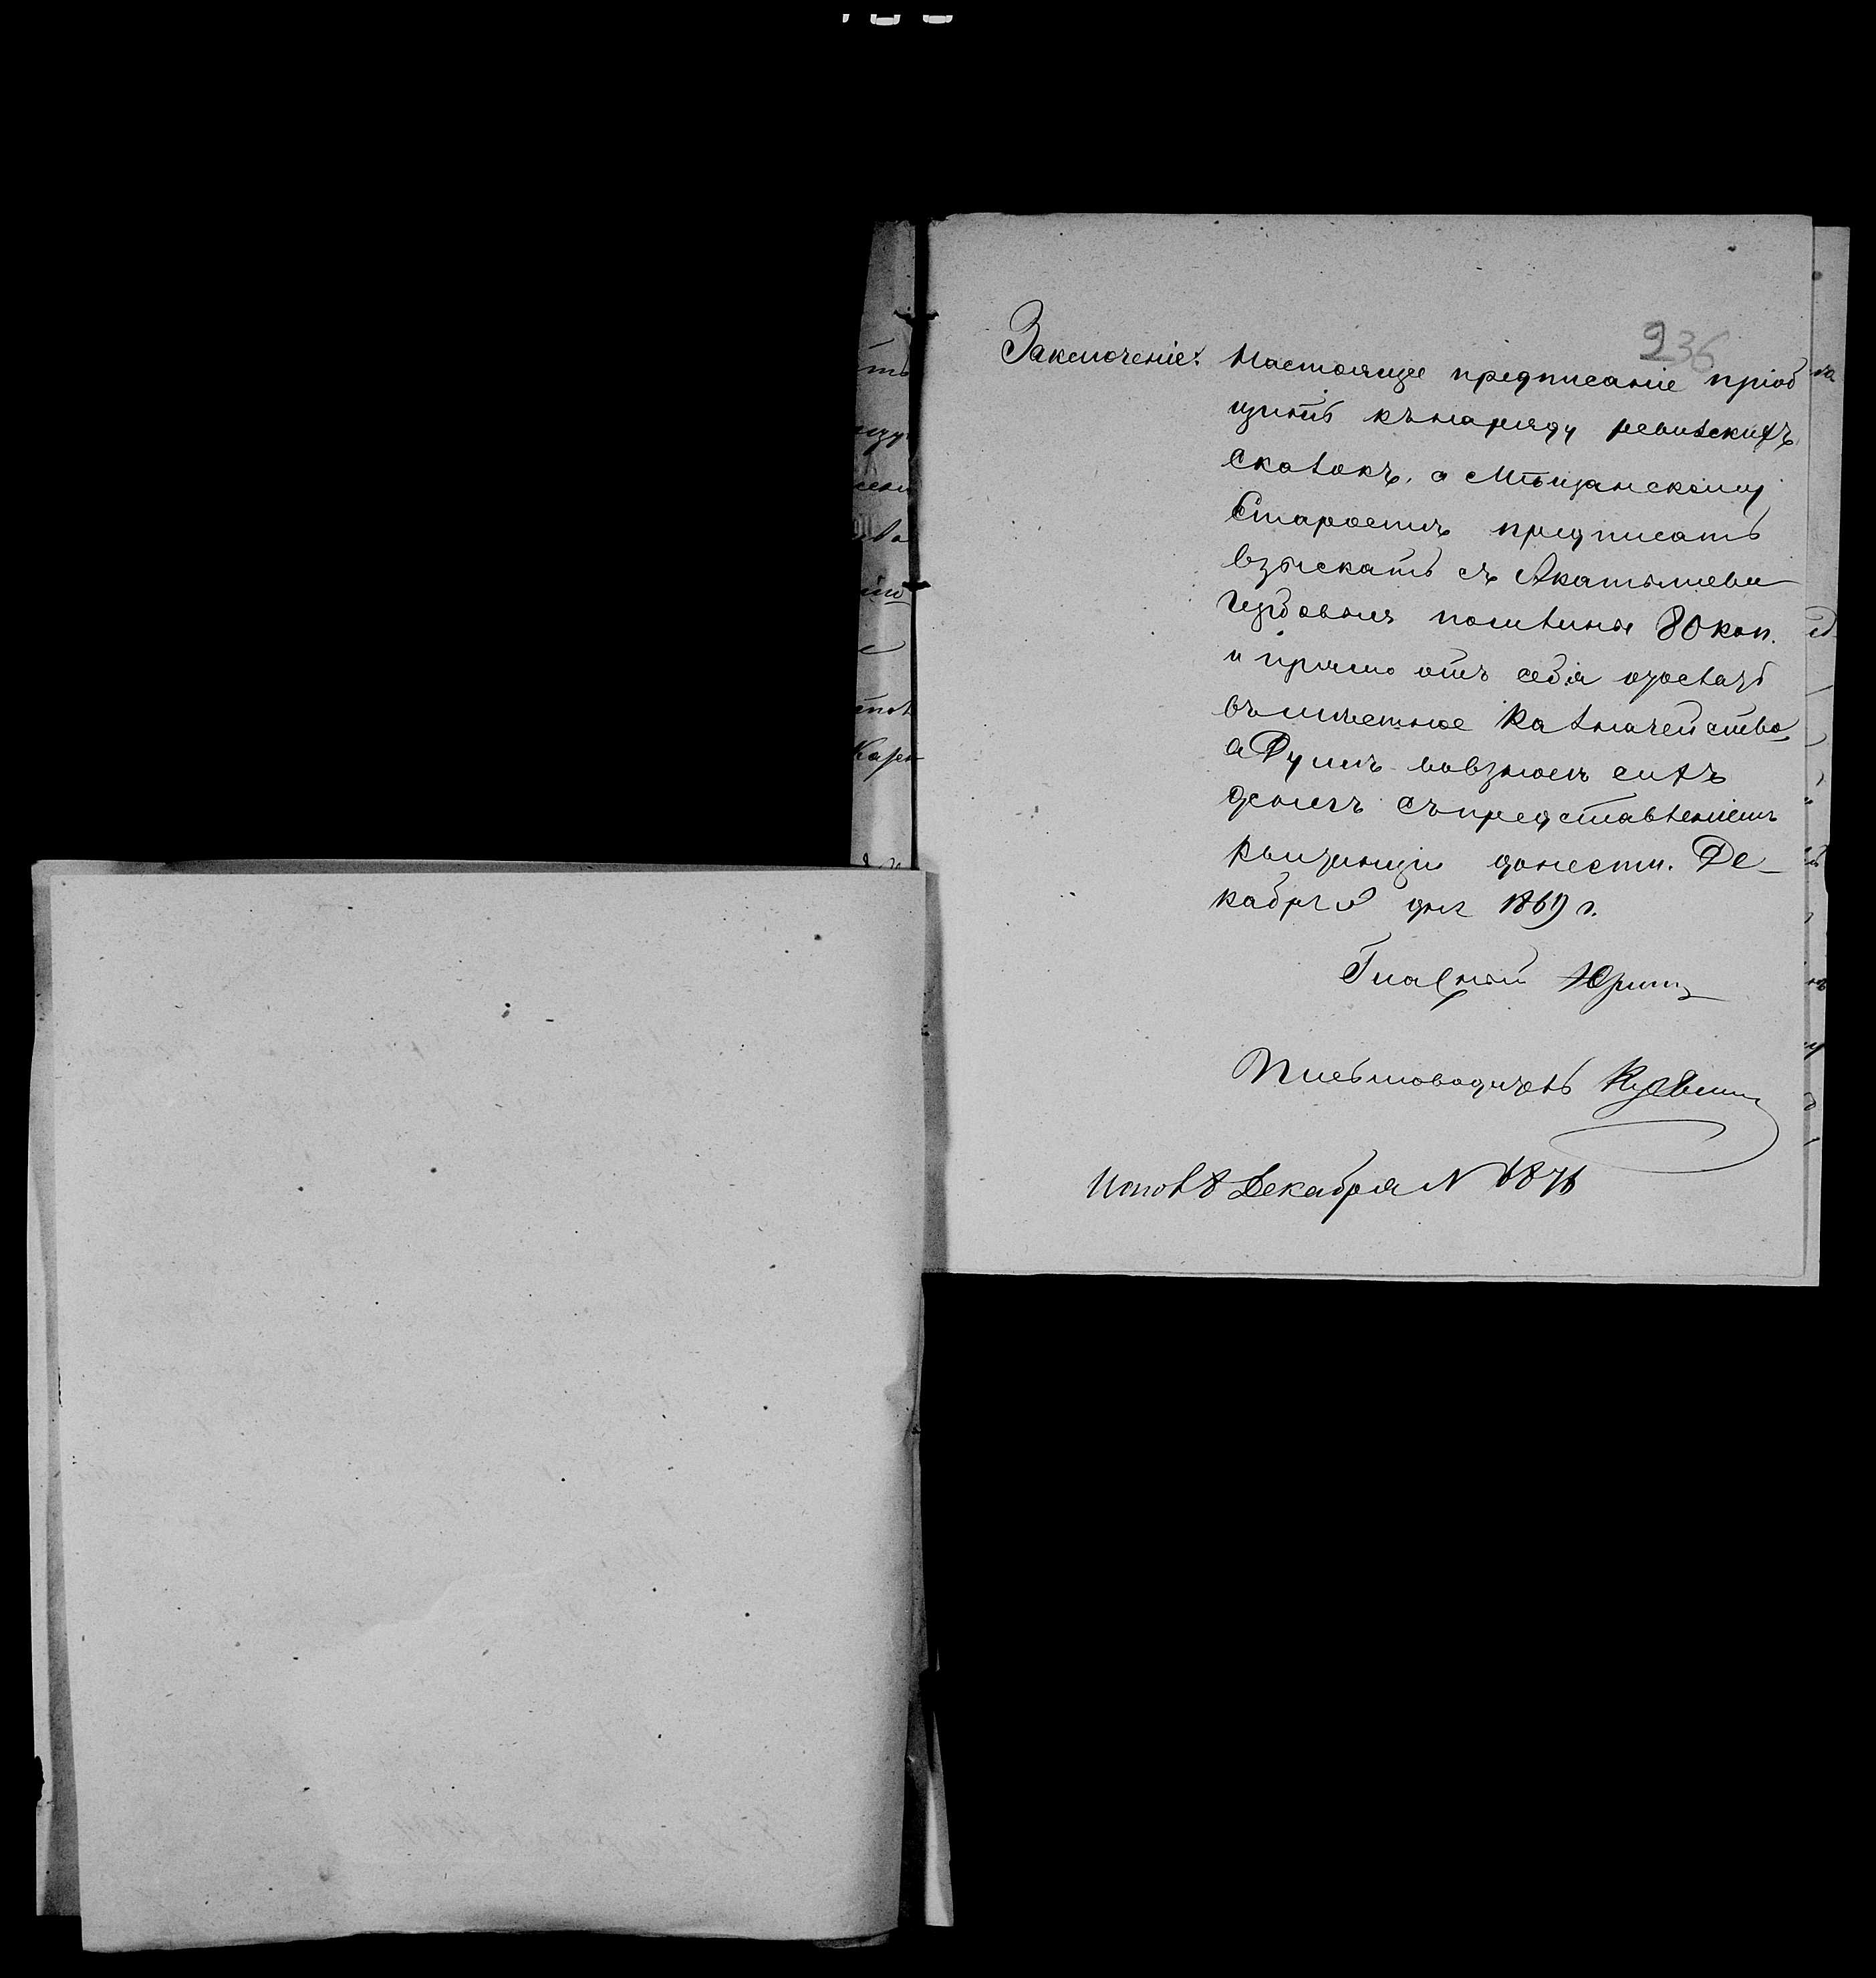 236
Заключеніе: Настоящее предписаніе пріоб
щить къ наряду ревизскихъ
сказокъ, а Мѣщанскому
Старостѣ предписать
взыскать съ Акатышева
гербовыя пошлины 80 коп.
и прямо отъ себя
въ мѣстное Казначейство
а Думѣ о взносѣ сихъ
денегъ съ представленіемъ
квитанціи донести. Де-
кабря дня 1869 г.
Гласный
Письмоводитель
Испол 8 Декабря N 1876